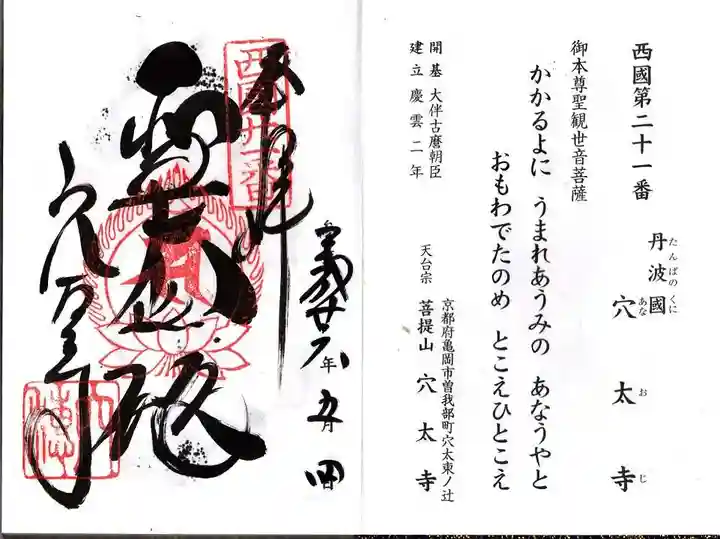 西國第二十一番
丹波國 穴太寺
たんばのくに あなおじ
御本尊聖観世音菩薩
かかるよに うまれあうみの あなうやと
おもわでたのめ とこえひとこえ
開基 大伴古麿朝臣
建立慶雲二年
京都府亀岡市曽我部町穴太東ノ辻
天台宗 菩提山 穴太寺
奉拝
西國廿一番
穴太寺